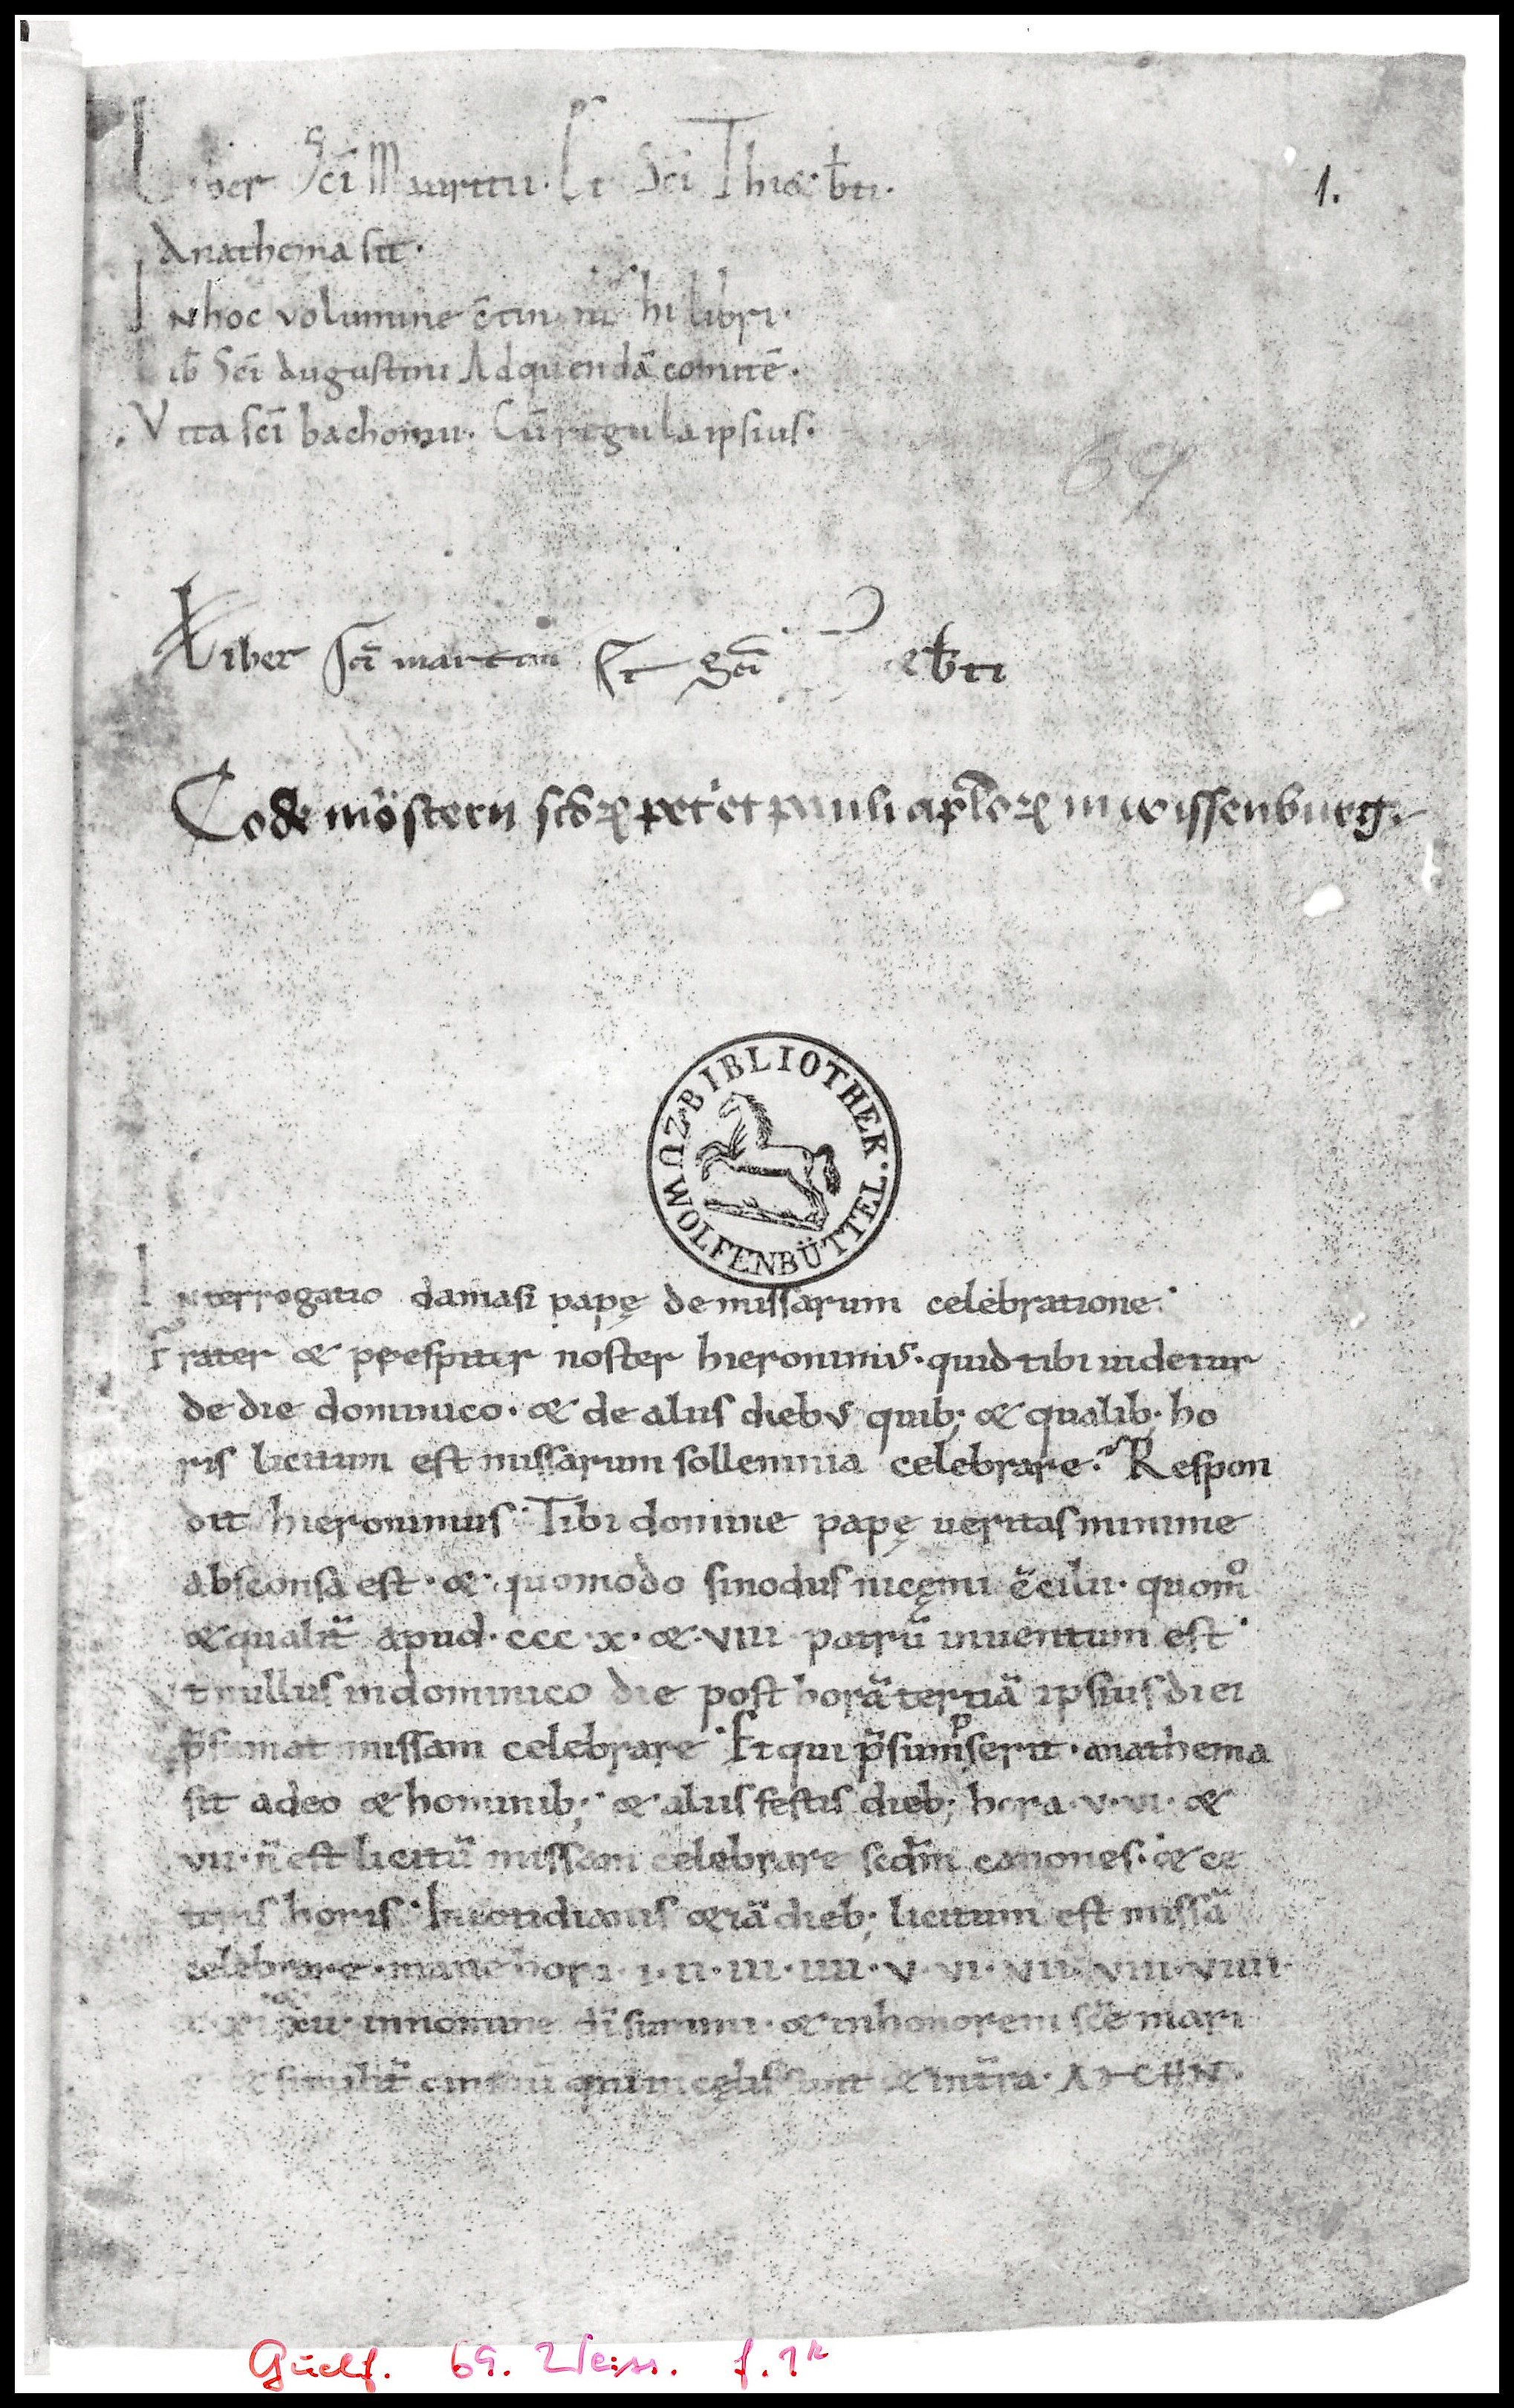 Liber Scī Mauritii. Et Sci Thiæ.b̄ti.
1.
Anathema sit.
In hoc volumine c̄tin hi libri.
lib̄ Scī Augustini Ad quendā comitē.
Vita scī bachomii. Cū regula ipsius.
69
Liber Scī martini Et Scī eb̄ti
Codex mōsterii sctōꝝ pet' et pauli aplōꝝ in wissenburg.
BIBLIOTHEK.
WOLFENBÜTTEL
Interrogatio damasi papę de missarum celebratione.
Frater & prespiter noster hieronimus. quid tibi uidetur
de die dominico. & de aliis diebus quib; & qualib; ho
ris licitum est missarum sollemnia celebrare. Respon
dit hieronimus. Tibi domine papę ueritas minime
absconsa est. & quomodo sinodus nicęni c̄cilii. quom̊
& qualit̄ apud. ccc. x. &. viii patrū inuentum est.
ut nullus in dominico die post horā tertiā ipsius diei
p̄sumat missam celebrare. Et qui p̄sumpserit. anathema
sit a deo & hominib;. & aliis festis dieb; hora. v. vi. &
vii. n̄ est licitū missam celebrare scdm̄ canones. & ce
teris horis. In cotidianis & iā dieb; licitum est missā
celebrare. mane hora. i. ii. iii. iiii. v. vi. vii. viii. viiii.
xii. in nomine dī summi. & in honorem scē mari
& similit̄ qui in cęlis sunt & in tr̄a. AMHN.
Guelf. 69. Weiss. f. 1r